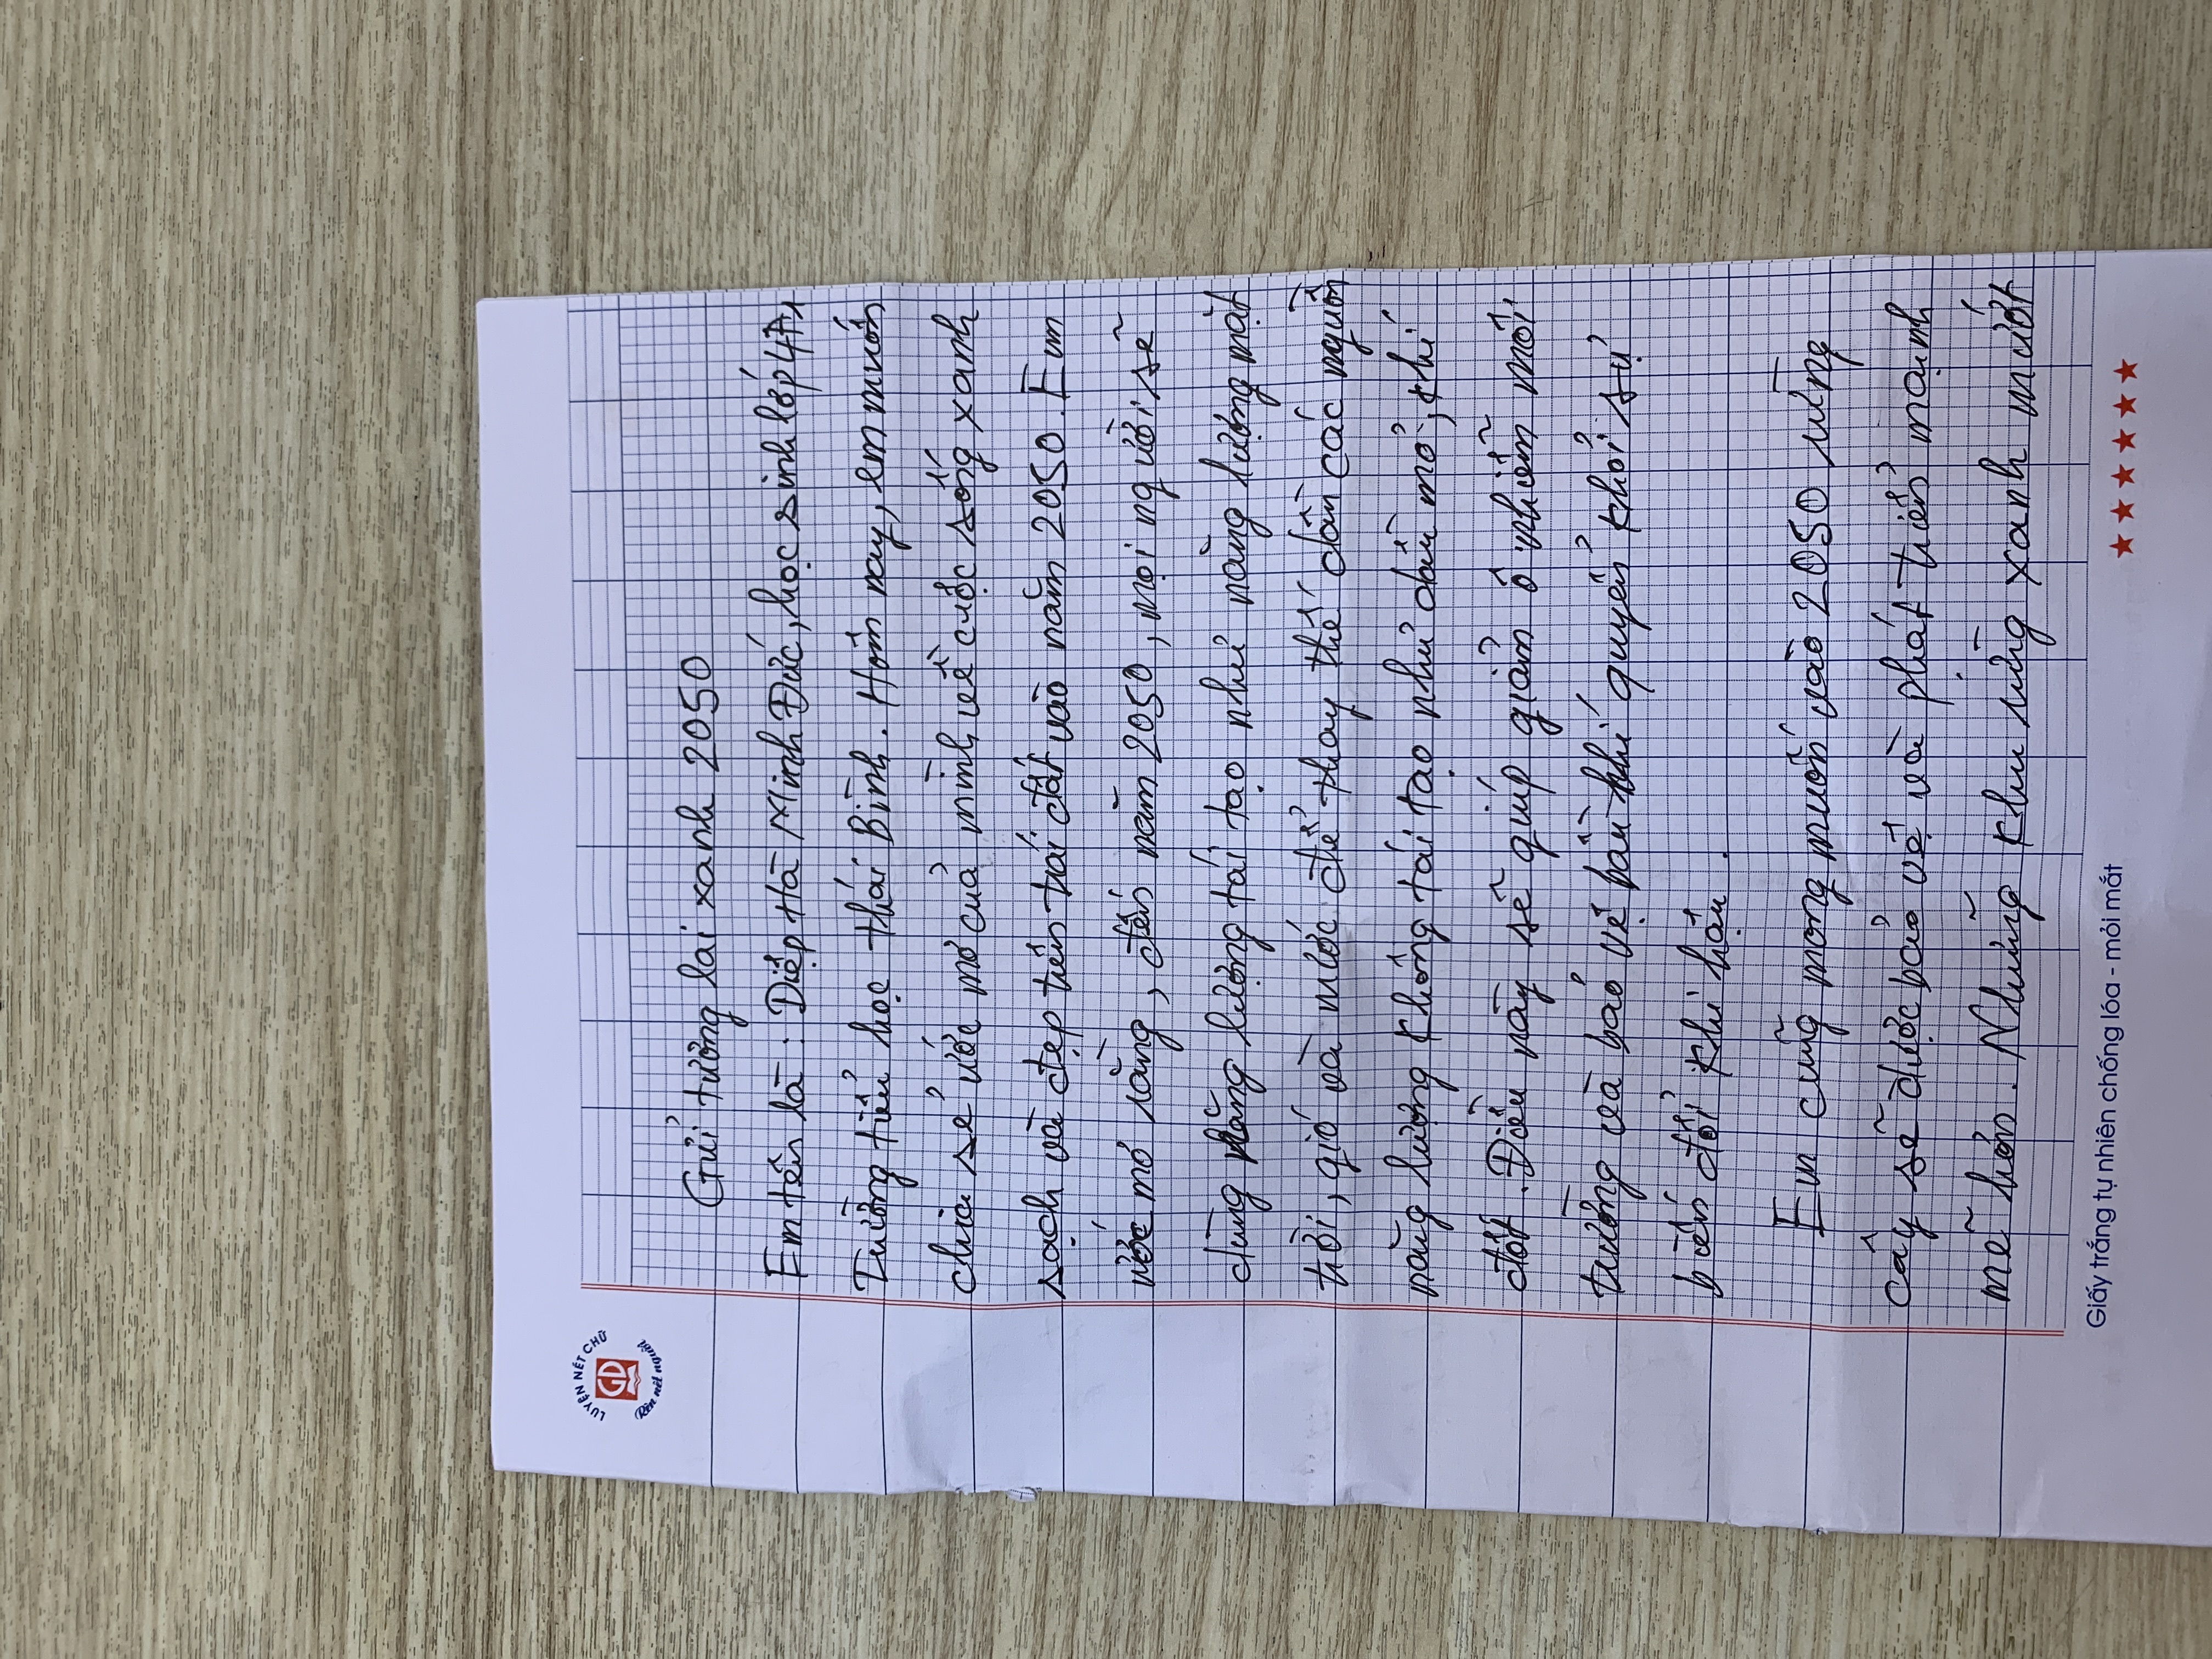 LUYỆN NÉT CHỮ
GD
Rèn nết người
Gửi tương lai xanh 2050
Em tên là: Diệp Hà Minh Đức, học sinh lớp 4A1
Trường tiểu học thái Bình. Hôm nay, em muốn
chia sẻ ước mơ của mình về cuộc sống xanh
sạch và đẹp trên trái đất vào năm 2050. Em
ước mơ rằng, đến năm 2050, mọi người sẽ
dùng năng lượng tái tạo như năng lượng mặt
trời, gió và nước để thay thế dần các nguồn
năng lượng không tái tạo như dầu mỏ, khí
đốt. Điều này sẽ giúp giảm ô nhiễm môi
trường và bảo vệ bầu khí quyển khỏi sự
biến đổi khí hậu.
Em cũng mong muốn vào 2050 rừng
cây sẽ được bảo vệ và phát triển mạnh
mẽ hơn. Những khu rừng xanh mướt
Giấy trắng tự nhiên chống lóa - mỏi mắt
★★★★★